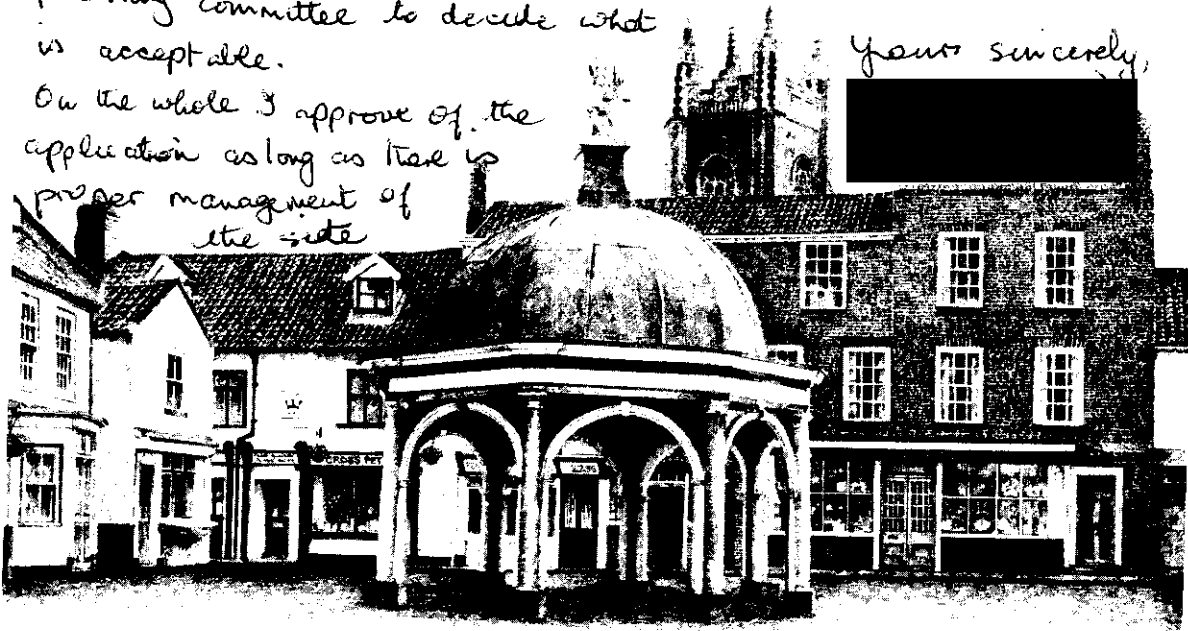 committee to decide what
is acceptable.
On the whole I approve of the
application as long as there is
proper management of
the site
Yours sincerely,